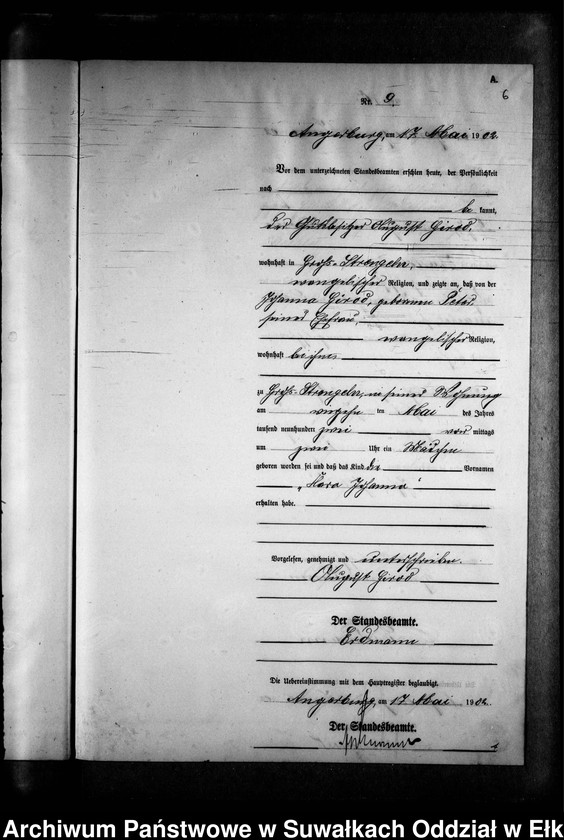 A.
6
Nr. 9.
Angerburg, am 17 Mai 1902.
Vor dem unterzeichneten Standesbeamten erschien heute, der Persönlichkeit
nach
be kannt,
der Gutsbesitzer August Girod,
wohnhaft in Groß-Strengeln,
evangelischer Religion, und zeigte an, daß von der
Johanna Girod, geborenen Peter
seiner Ehefrau,
evangelischer Religion,
wohnhaft bei ihm
zu Groß-Strengeln, in seiner Wohnung
am vierzehn ten Mai des Jahres
tausend neunhundert zwei vor mittags
um zwei Uhr ein Mädchen
geboren worden sei und daß das Kind die Vornamen
Johanna
erhalten habe.
Vorgelesen, genehmigt und unterschrieben.
August Girod
Der Standesbeamte.
Erdmann
Die Uebereinstimmung mit dem Hauptregister beglaubigt.
Angerburg, am 17 Mai 1902.
Der Standesbeamte.
Archiwum Państwowe w Suwałkach Oddział w Ełk